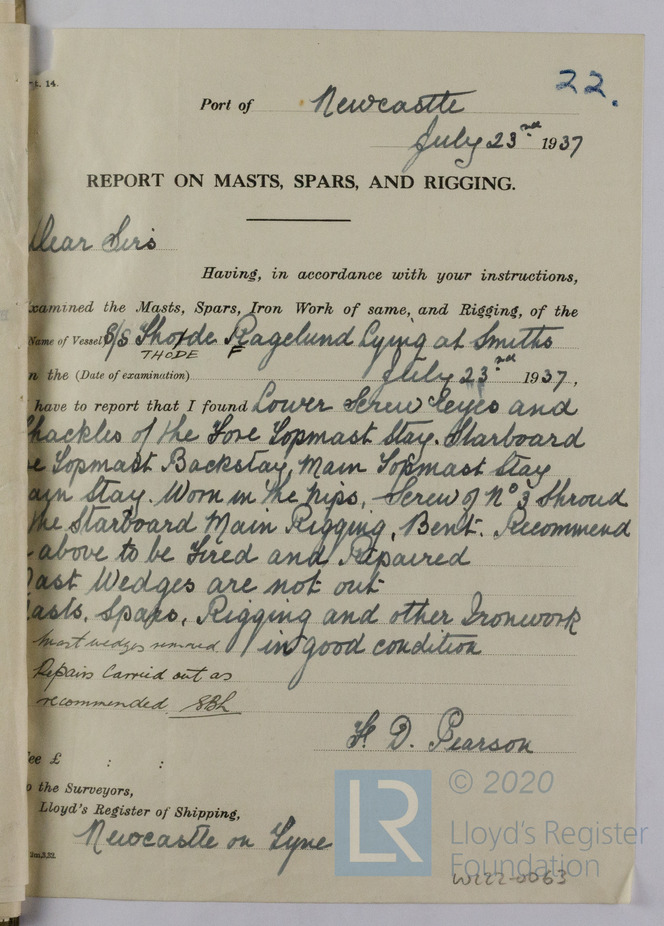 22.
Rpt. 14.
Port of Newcastle
July 23rd 1937
REPORT ON MASTS, SPARS, AND RIGGING.
Dear Sirs
Having, in accordance with your instructions,
examined the Masts, Spars, Iron Work of same, and Rigging, of the
Name of Vessel S/S Thorde Fagelund Lying at Smiths
THODE F
n the (Date of examination) July 23rd 1937,
have to report that I found Lower Screw Eeyes and
Shackles of the Fore Topmast Stay. Starboard
e Topmast Backstay, Main Topmast Stay
ain Stay. Worn in the Nips, Screw of No 3 Shroud
the Starboard Main Rigging, Bent. Recommend
above to be Fired and Repaired
Mast Wedges are not out
Masts, Spars, Rigging and other Ironwork
Mast wedges removed / in good condition
Repairs Carried out as
recommended
F. D. Pearson
Fee £ : :
To the Surveyors,
Lloyd's Register of Shipping,
Newcastle on Tyne
2m,3,32.
LR
© 2020
Lloyd's Register
Foundation
W222-0063